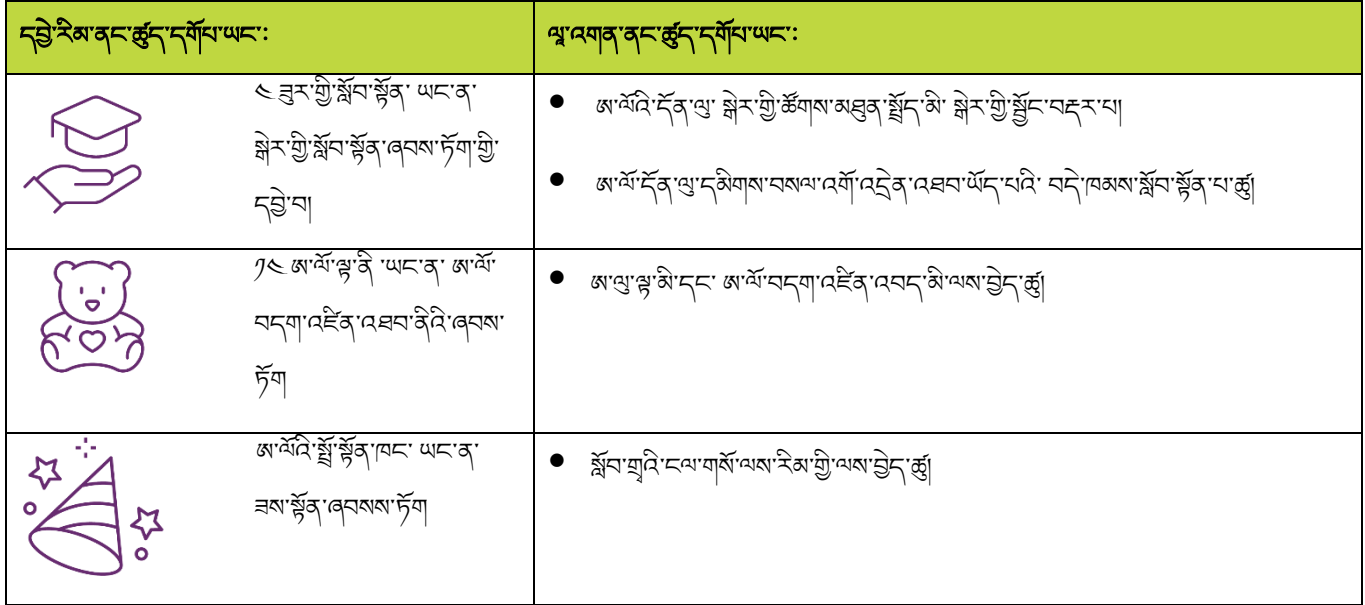 དབྱེ་རིམ་ནང་ཚུད་དགོཔ་ཡང་:
ལཱ་འགན་ནང་ཚུད་དགོཔ་ཡང་:
༤ ཟུར་གྱི་སློབ་སྟོན་ ཡང་ན་
སྒེར་གྱི་སློབ་སྟོན་ཞབས་ཏོག་གྱི་
དབྱེ་བ།
● ཨ་ལོའི་དོན་ལུ་ སྒེར་གྱི་ཚོགས་མཐུན་སྤྲོད་མི་ སྒེར་གྱི་སྦྱོང་བརྡར་པ།
● ཨ་ལོ་དོན་ལུ་དམིགས་བསལ་འགོ་འདྲེན་འཐབ་ཡོད་པའི་ བདེ་ཁམས་སློབ་སྟོན་པ་ཚུ།
༡༤ ཨ་ལོ་ལྟ་ནི་ ་ཡང་ན་ ཨ་ལོ་
བདག་འཛིན་འཐབ་ནིའི་ཞབས་
ཏོག
● ཨ་ལུ་ལྟ་མི་དང་ ཨ་ལོ་བདག་འཛིན་འབད་མི་ལས་བྱེད་ཚུ།
ཨ་ལོའི་སྤྲོ་སྟོན་ཁང་ ཡང་ན་
ཟས་སྟོན་ཞབསས་ཏོག
● སློབ་གྲྭའི་ངལ་གསོ་ལས་རིམ་གྱི་ལས་བྱེད་ཚུ།